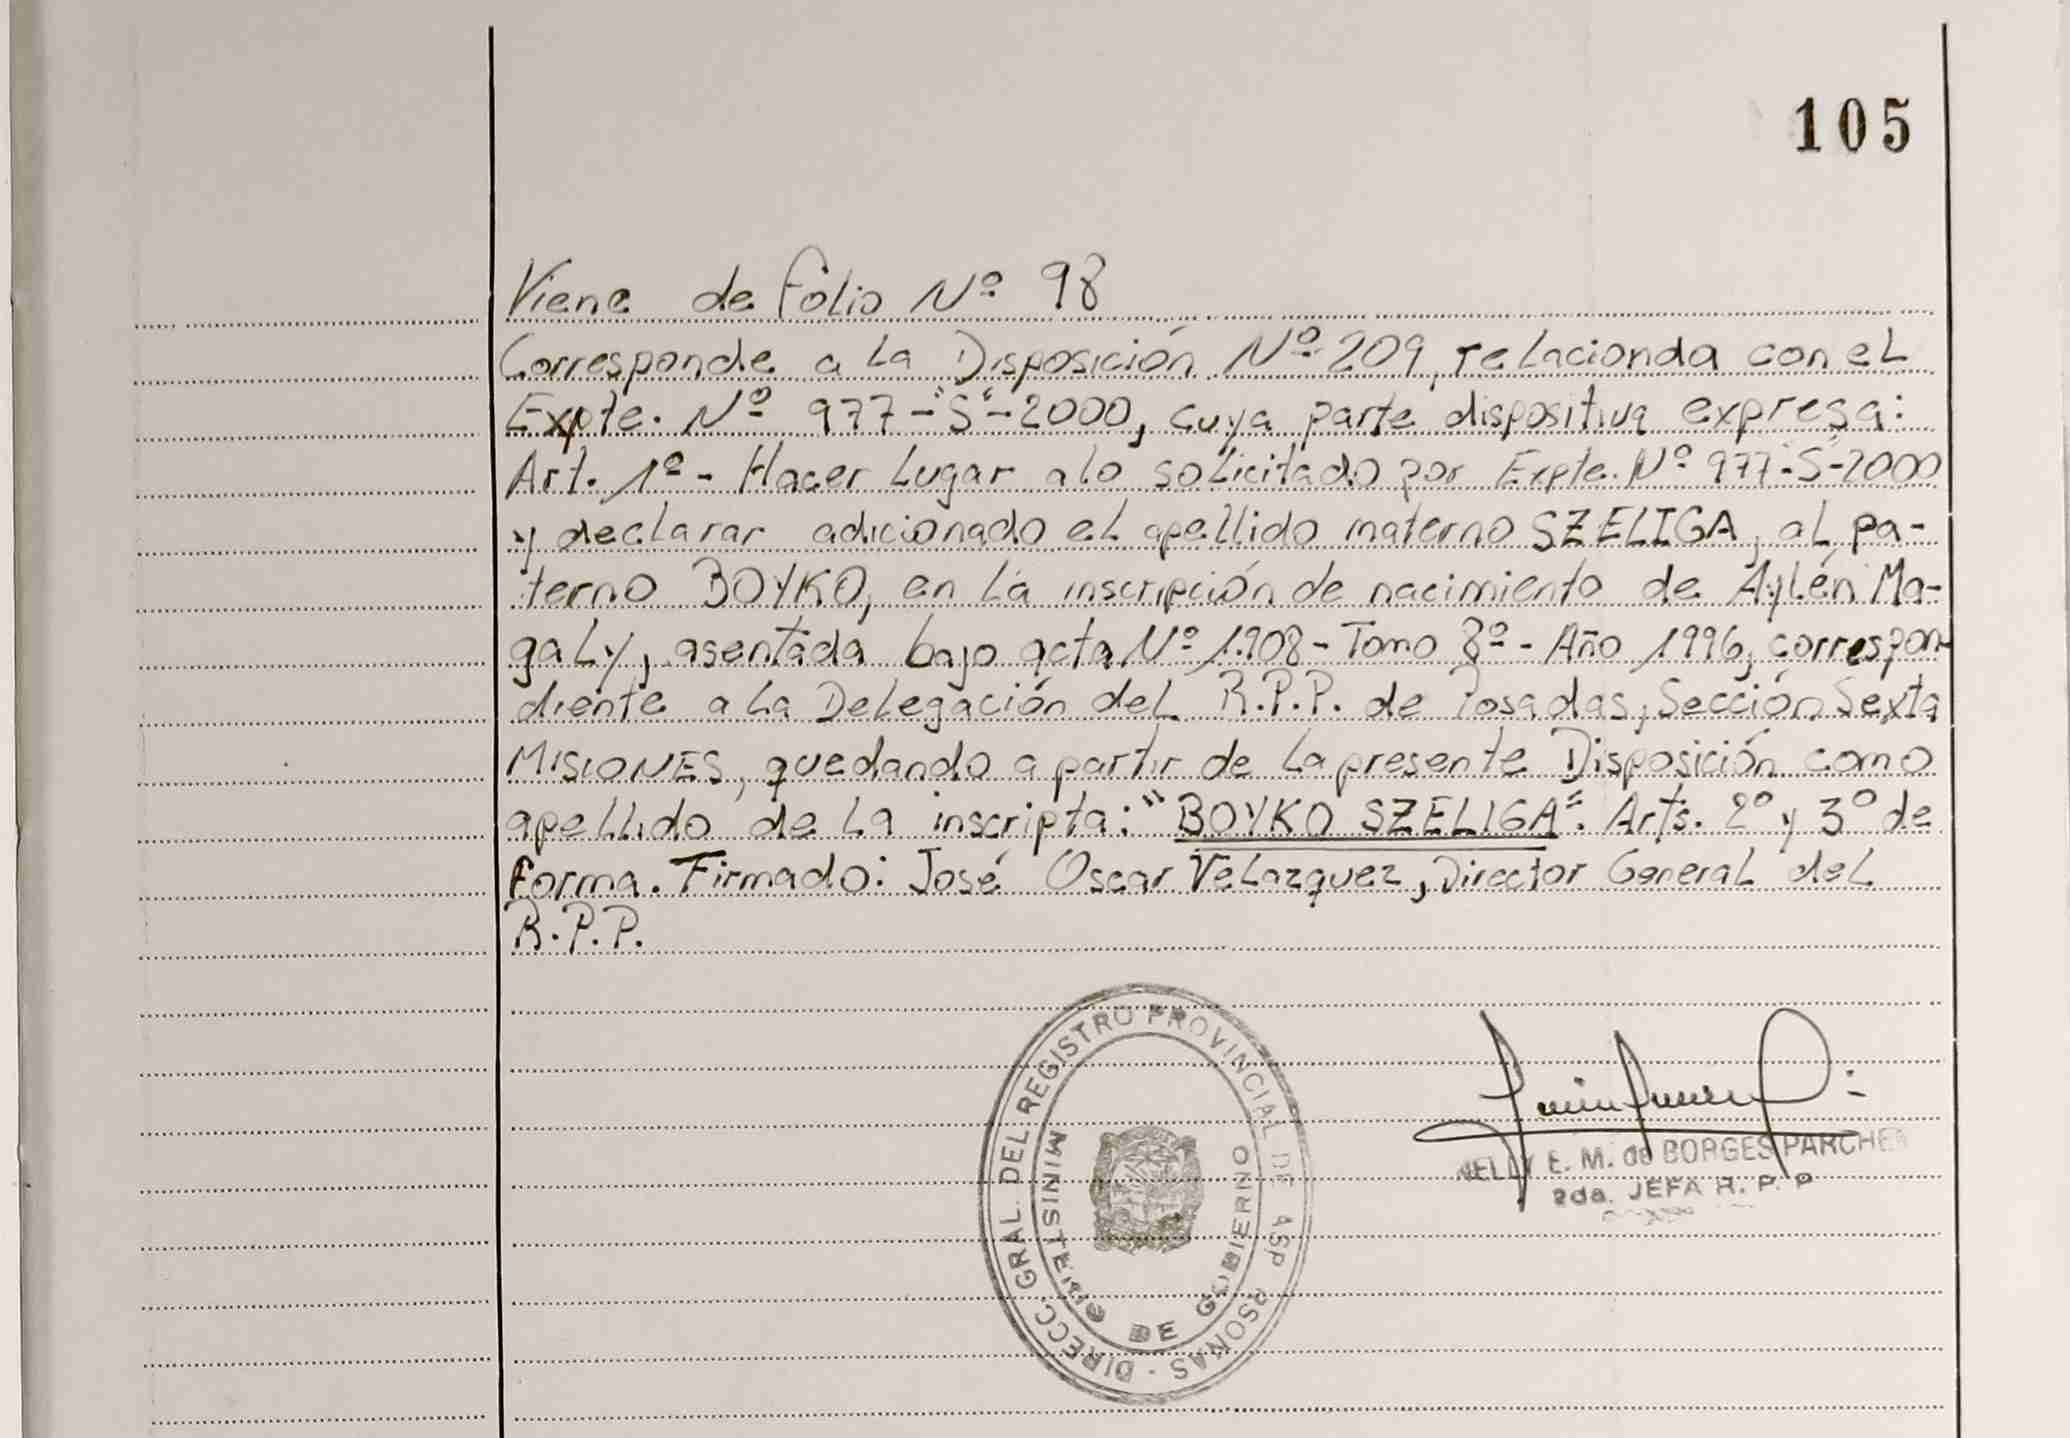 105
Viene de folio Nº 98
Corresponde a la Disposición Nº 209, relacionda con el
Expte. Nº 977-"S"-2000, cuya parte dispositiva expresa:
Art. 1º - Hacer lugar a lo solicitado por Expte. Nº 977-"S"-2000
y declarar adicionado el apellido materno SZELIGA, al pa-
terno BOYKO, en la inscripción de nacimiento de Aylén Ma-
galy, asentada bajo acta Nº 1.908 - Tomo 8º - Año 1996, correspon-
diente a la Delegación del R.P.P. de Posadas, Sección Sexta
MISIONES, quedando a partir de la presente Disposición como
apellido de la inscripta: "BOYKO SZELIGA". Arts. 2º y 3º de
forma. Firmado: José Oscar Velazquez, Director General del
R.P.P.
DIRECC. GRAL. DEL REGISTRO PROVINCIAL DE
MINISTERIO DE GOBIERNO
NELLY E. M. de BORGES PARCHEN
2da. JEFA R. P. P